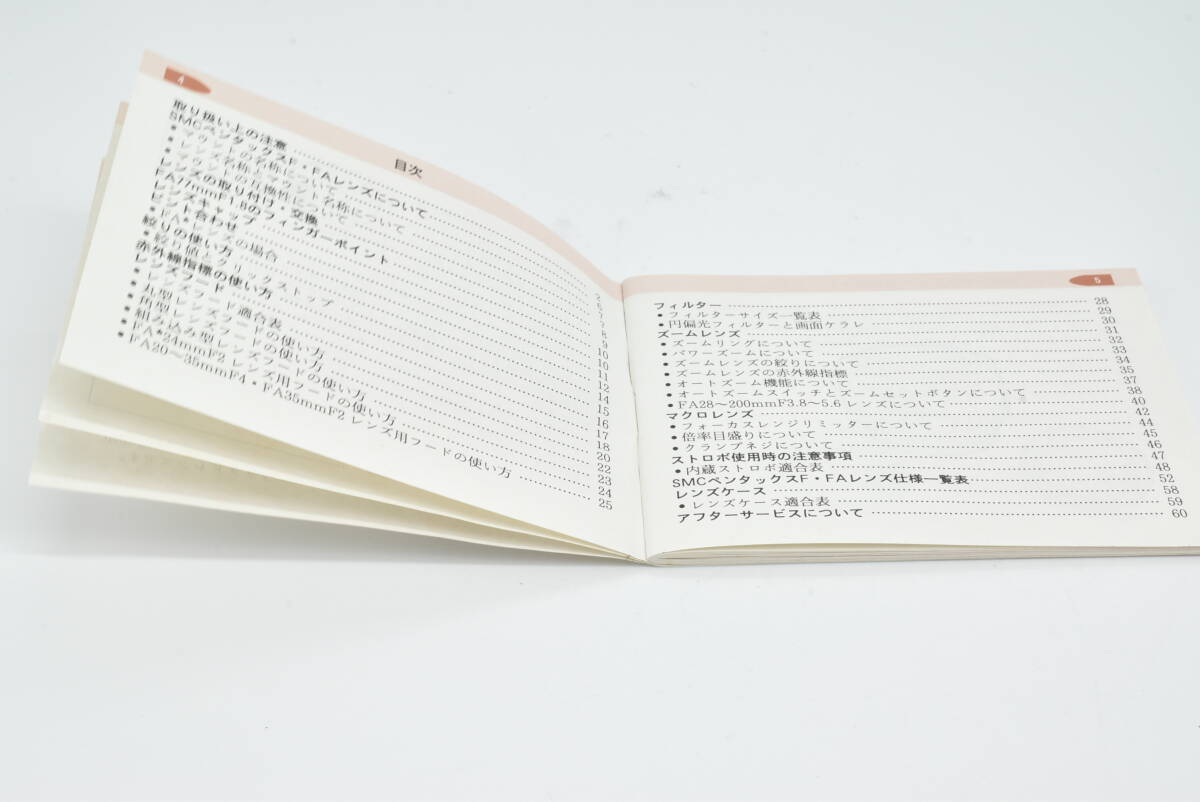 4
目次
取り扱い上の注意 ………… 2
SMCペンタックスF・FAレンズについて ………… 6
•マウントの名称について ………… 7
•レンズ名称とマウント名称について ………… 7
•マウントの互換性について ………… 8
レンズの取り付け・交換 ………… 9
FA77mmF1.8のフィンガーポイント ………… 10
レンズキャップ ………… 10
ピント合わせ ………… 11
•FA*レンズの場合 ………… 12
絞りの使い方 ………… 14
•絞り値とクリックストップ ………… 15
赤外線指標の使い方 ………… 16
レンズフード ………… 17
•レンズフード適合表 ………… 18
•丸型レンズフードの使い方 ………… 20
•角型レンズフードの使い方 ………… 22
•組み込み型レンズフードの使い方 ………… 23
•FA*24mmF2 レンズ用フードの使い方 ………… 24
•FA20〜35mmF4・FA35mmF2 レンズ用フードの使い方 ………… 25
5
フィルター ………… 28
•フィルターサイズ一覧表 ………… 29
•円偏光フィルターと画面ケラレ ………… 30
ズームレンズ ………… 31
•ズームリングについて ………… 32
•パワーズームについて ………… 33
•ズームレンズの絞りについて ………… 34
•ズームレンズの赤外線指標 ………… 35
•オートズーム機能について ………… 37
•オートズームスイッチとズームセットボタンについて ………… 38
•FA28〜200mmF3.8〜5.6 レンズについて ………… 40
マクロレンズ ………… 42
•フォーカスレンジリミッターについて ………… 44
•倍率目盛りについて ………… 45
•クランプネジについて ………… 46
ストロボ使用時の注意事項 ………… 47
•内蔵ストロボ適合表 ………… 48
SMCペンタックスF・FAレンズ仕様一覧表 ………… 52
レンズケース ………… 58
•レンズケース適合表 ………… 59
アフターサービスについて ………… 60